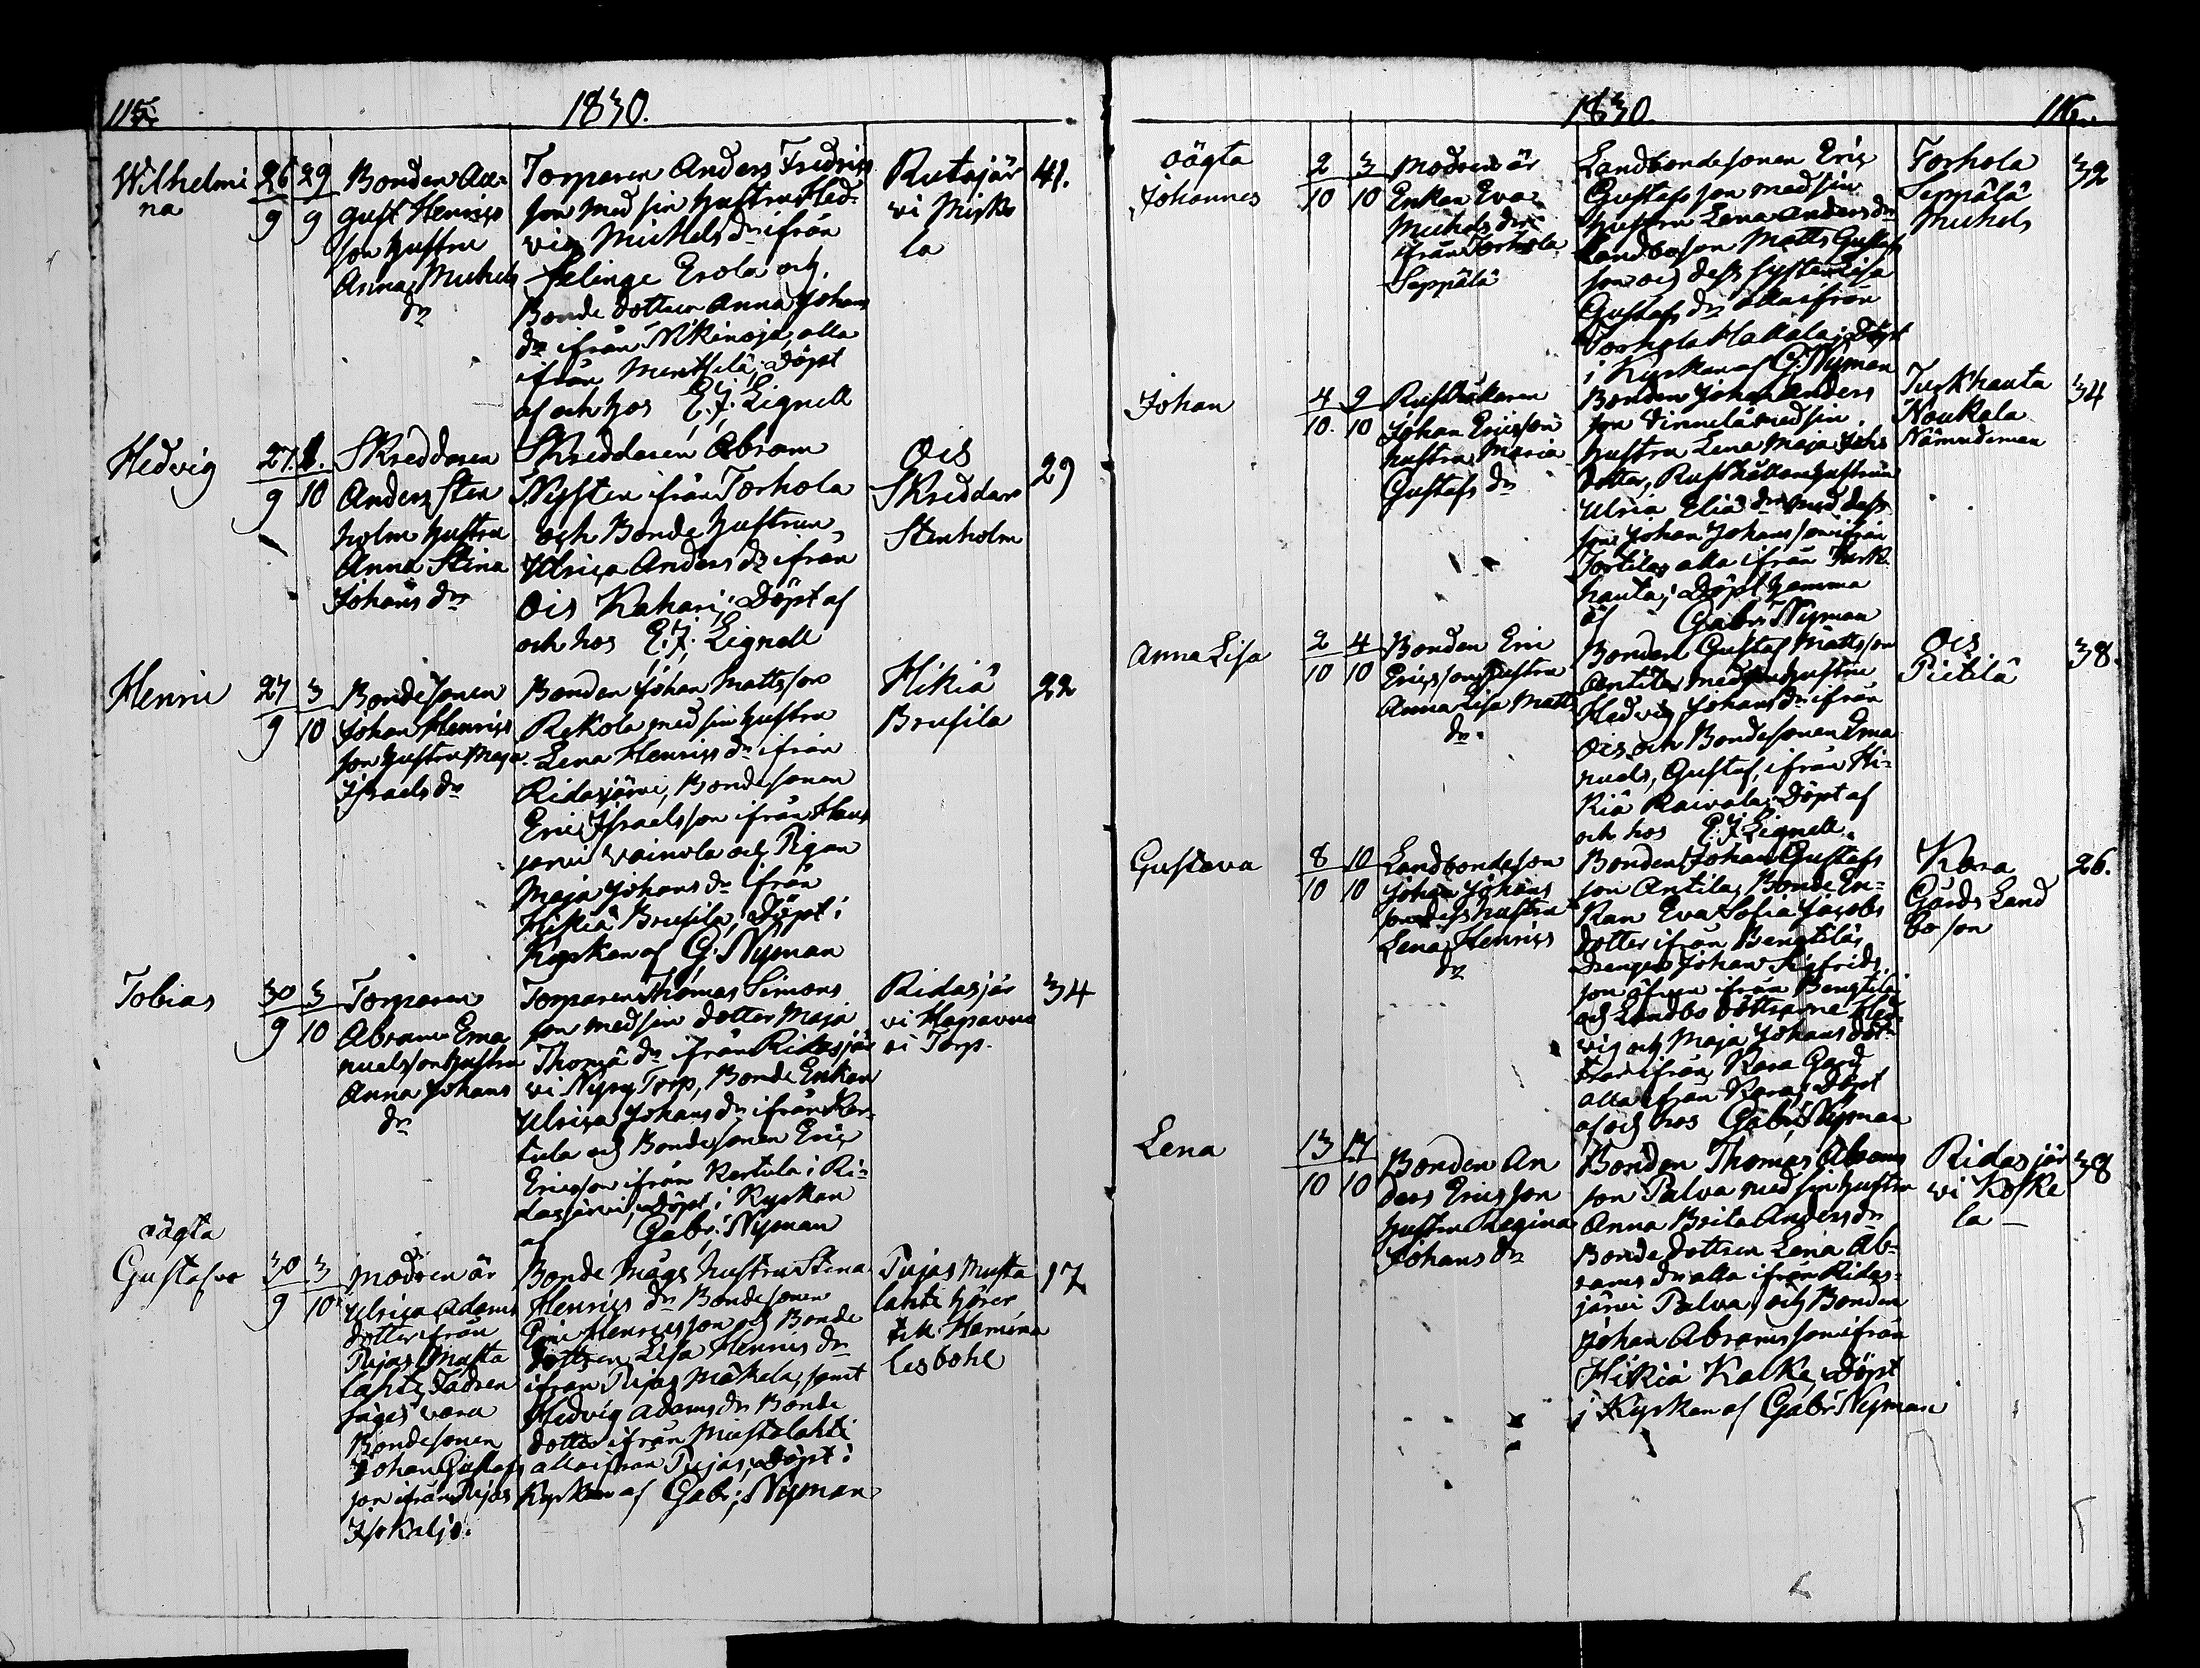 115.
1830.
Wilhelmi
na
26 29
9 9
Bonden Au-
gust Henrics
son hustru
Anna Michels
dr
Torparen Anders Fredrics
son med sin hustru Hed-
vig Michels dr ifrån
Erola och
Bonde dottren Anna Johans
dr ifrån Nikinoja, alla
ifrån Mentsilä; Döpt
af och hos E. J. Lignell
Rutajär
vi Misko
la
41.
Hedvig
27. 1.
9 10
Skreddaren
Anders Sten
holm hustru
Anna Stina
Johans dr
Skreddaren Abram
Nysten ifrån Torhola
och Bonde hustrun
Ulrica Anders dr ifrån
Ois Kahari; Döpt af
och hos E. J. Lignell
Ois
Skreddare
Stenholm
29
Henric
27 3
9 10
Bondesonen
Johan Henrics
son hustru Maja
Israels dr
Bonden Johan Mattsson
Rekola med sin hustru
Lena Henrics dr ifrån
Ridasjärvi, Bondesonen
Eric Israelsson ifrån Haus
jervi Vainola och Pigan
Maja Johans dr ifrån
Hikiä Brusila, Döpt i
Kyrkan af G. Nyman
Hikiä
Brusila
22
Tobias
30 3
9 10
Torparen
Abram Ema
nuelsson hustru
Anna Johans
dr
Torparen Thomas Simons
son med sin dotter Maja
Thomä dr ifrån Ridasjär
vi Nyry Torp, Bonde Enkan
Ulrica Johans dr ifrån Ker-
tula och Bondesonen Eric
Ericsson ifrån Kertula i Ri-
dasjärvi, Döpt i Kyrkan
af Gabr: Nyman
Ridasjär
vi Hapavuo
ri Torp.
34
oägta
Gustafva
30 3
9 10
Modren är
Ulrica Adams
dotter ifrån
Pujas Musta
lahti, Fadren
säges vara
Bondesonen
Johan Gustafs
son ifrån Pujas
Isokaljo.
Bonde Mågs hustru Stina
Henrics dr Bondesonen
Eric Henricsson och Bonde
dottren Lisa Henrics dr
ifrån Pujas Mäkela, samt
Hedvig Adams dr Bonde
dotter ifrån Mustalahti
alla ifrån Pujas, Döpt i
Kyrkan af Gabr: Nyman
Pujas Musta
lahti hörer
till Hamina
les bohl
17
1830.
116.
oägta
Johannes
2 3
10 10
Modren är
Enkan Eva
Michels dr
ifrån Torhola
Seppälä
Landbondesonen Eric
Gustafsson med sin
hustru Lena Anders dr
Landboson Matts Gustafs
son och dess syster Lisa
Gustafs dr alla ifrån
Torhola Hallala; Döpt
i Kyrkan af G. Nyman
Torhola
Seppälä
Michels
32
Johan
4 9
10. 10
Rusthållaren
Johan Ericsson
hustru Maria
Gustafs dr
Bonden Johan Anders
son med sin
hustru Lena Maja Johs
dotter, Rusthållarehustrun
Ulrica Eliä dr med dess
son Johan Johansson ifrån
Tortila, alla ifrån Turk-
hauta; Döpt hemma
af Gabr: Nyman
Turkhauta
Noukala
Nämndeman
34
Anna Lisa
2 4
10 10
Bonden Eric
Ericsson hustru
Anna Lisa Matts
dr.
Bonden Gustaf Mattsson
Antila med sin hustru
Hedvig Johans dr ifrån
Ois och Bondesonen Ema
nuel, Gustaf, ifrån Hi-
kiä Raivola; Döpt af
och hos E. J. Lignell.
Ois
Pietilä
38.
Gustava
8 10
10 10
Landbondeson
Johan Johans
son dess hustru
Lena Henrics
dr
Bonden Johan Gustafs
son Antila, Bonde En-
kan Eva Sofia Jacobs
dotter ifrån Bengtilä,
Drengen Johan Sigfrids
son äfven ifrån Bengtilä
och Landbo döttrarne Hed-
vig och Maja Johans döt-
trar ifrån Kara Gård
alla ifrån Kara; Döpt
af och hos Gabr: Nyman
Kara
Gårds Land
bo son
26.
Lena
13 17
10 10
Bonden An
ders Ericsson
hustru Regina
Johans dr
Bonden Thomas Abrams
son Palva med sin hustru
Anna Brita Anders dr
Bondedottren Lena Ab-
rams dr alla ifrån Ridas-
järvi Palva, och Bonden
Johan Abramsson ifrån
Hikiä Kalke, Döpt
i Kyrkan af Gabr: Nyman
Ridasjär
vi Koske
la
38